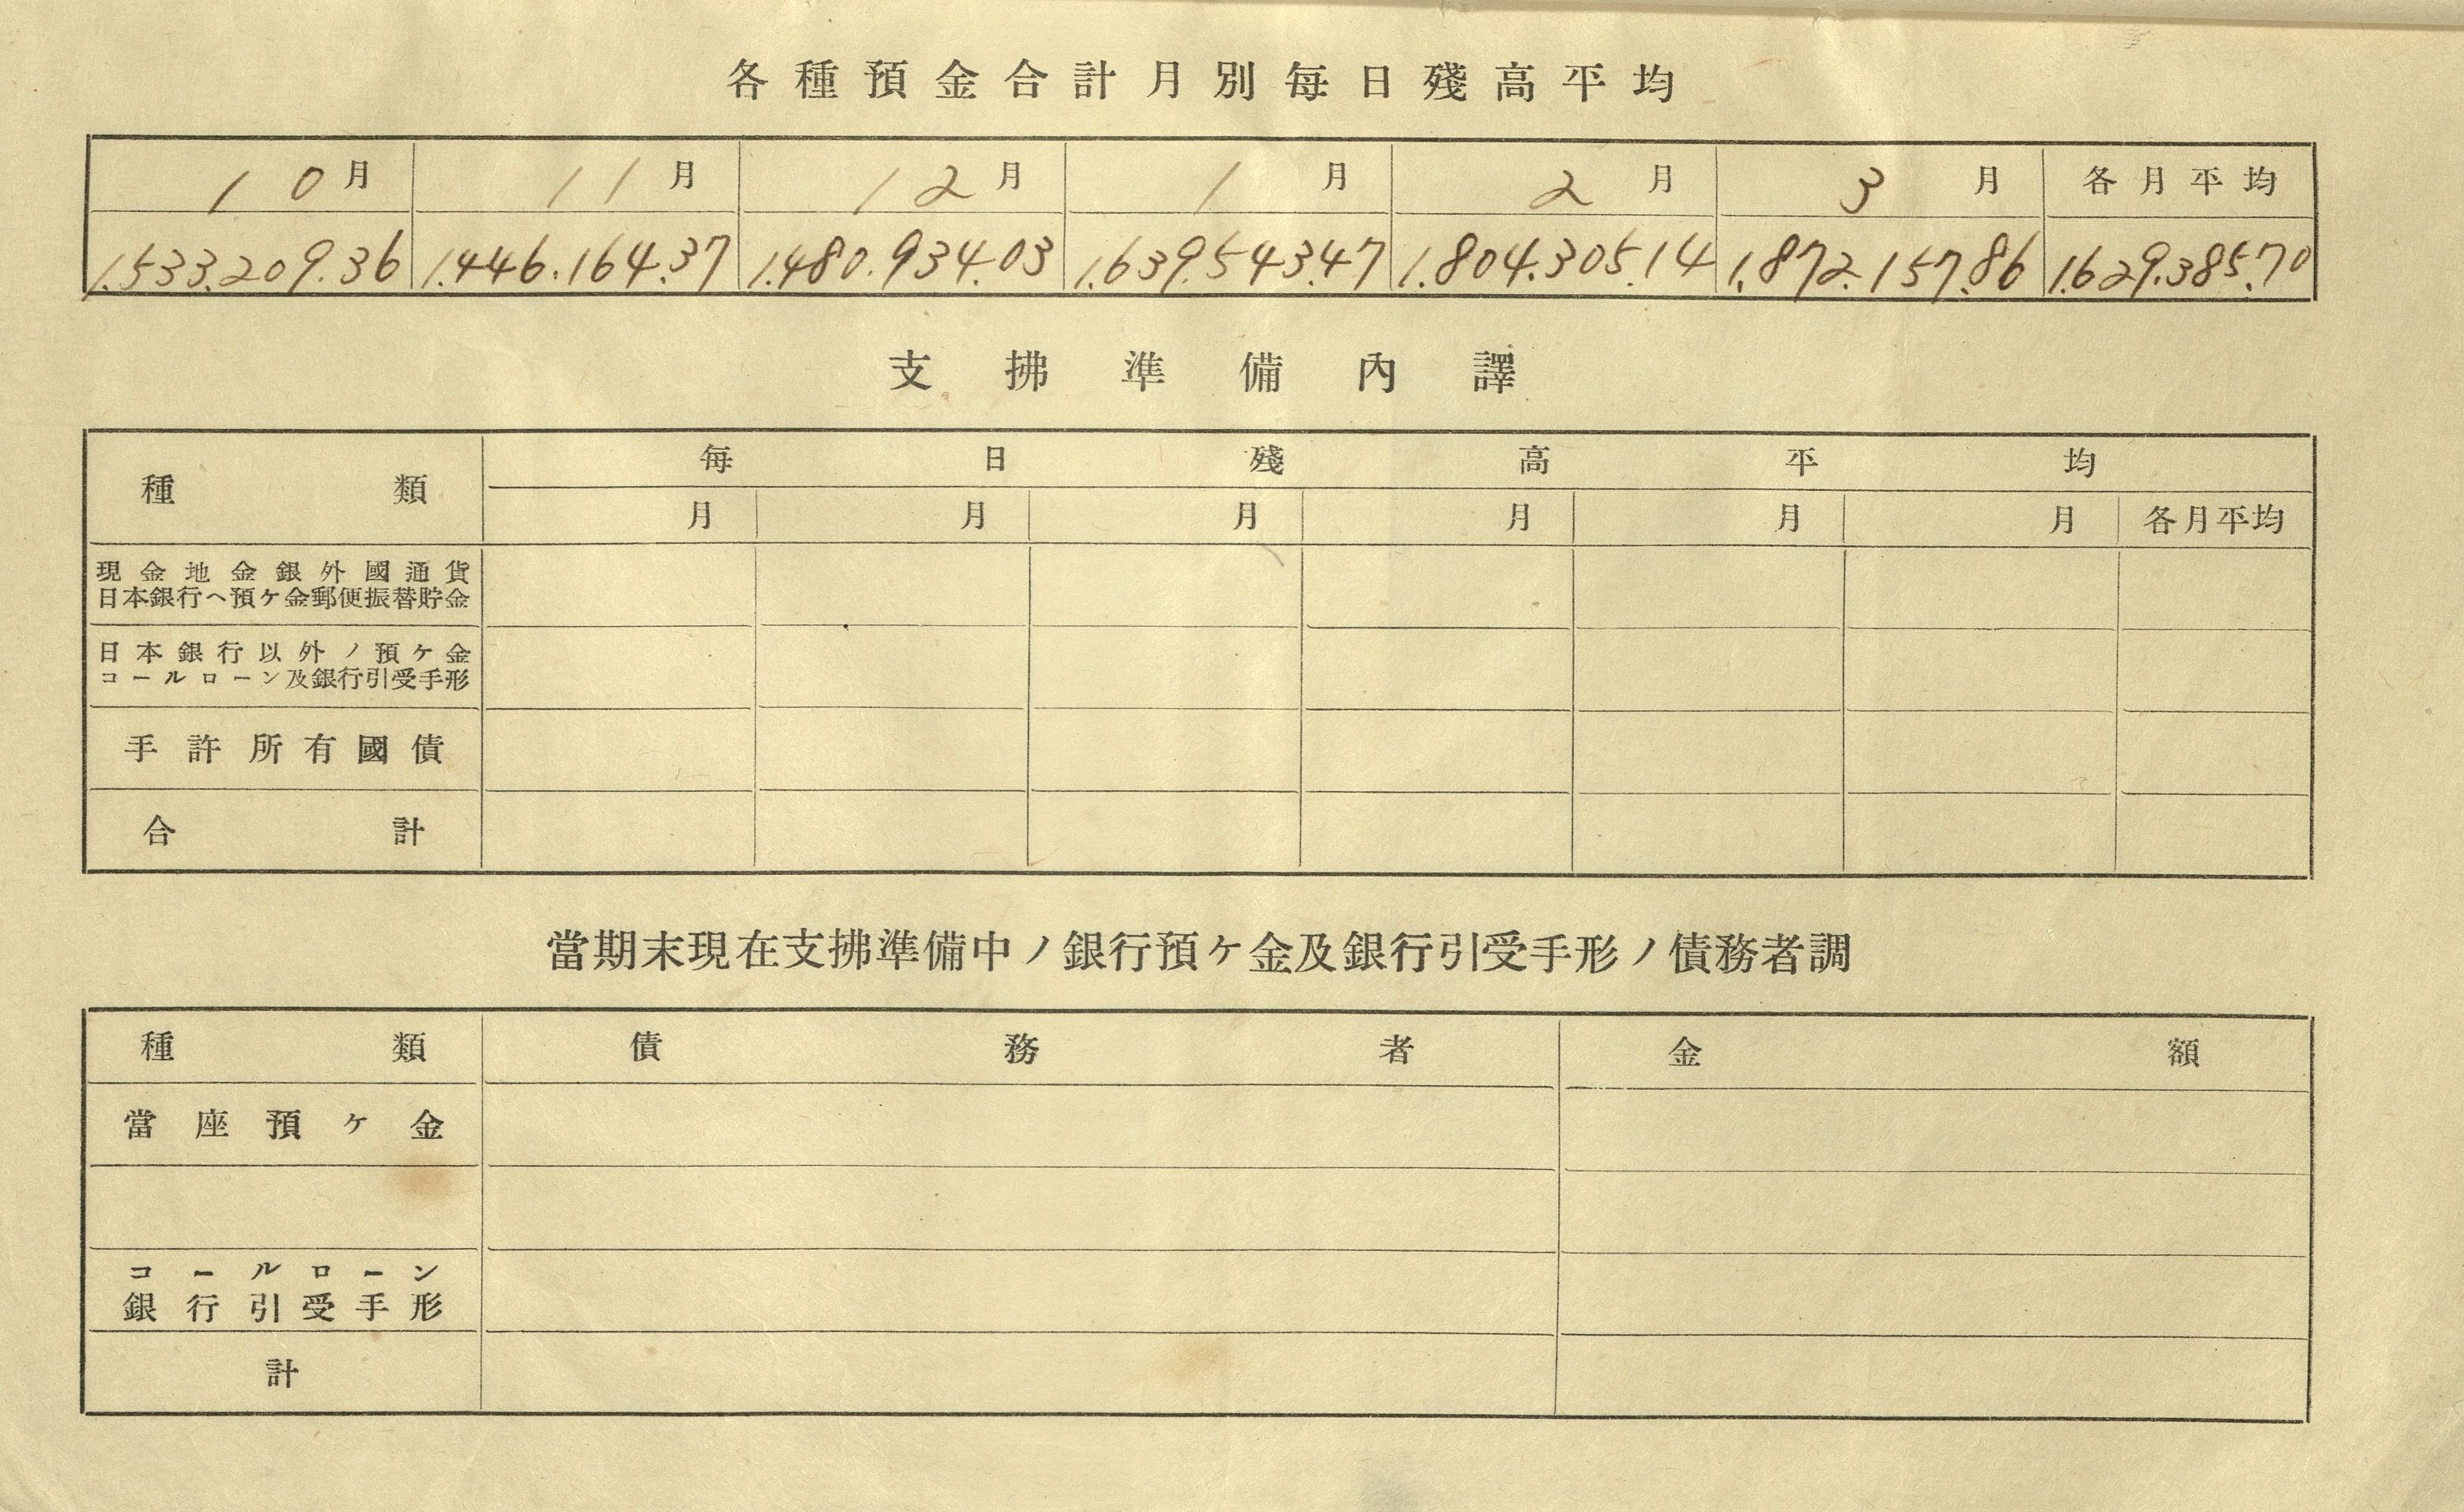 各種預金合計月別每日殘高平均
10月 11月 12月 1月 2月 3月 各月平均
1.533.209.36 1.446.164.37 1.480.934.03 1.639.543.47 1.804.305.14 1.872.157.86 1.629.385.70
支拂準備內譯
種類 每日殘高平均
月 月 月 月 月 月 各月平均
現金地金銀外國通貨
日本銀行ヘ預ケ金郵便振替貯金
日本銀行以外ノ預ケ金
コールローン及銀行引受手形
手許所有國債
合計
當期末現在支拂準備中ノ銀行預ケ金及銀行引受手形ノ債務者調
種類 債務者 金額
當座預ケ金
コールローン
銀行引受手形
計